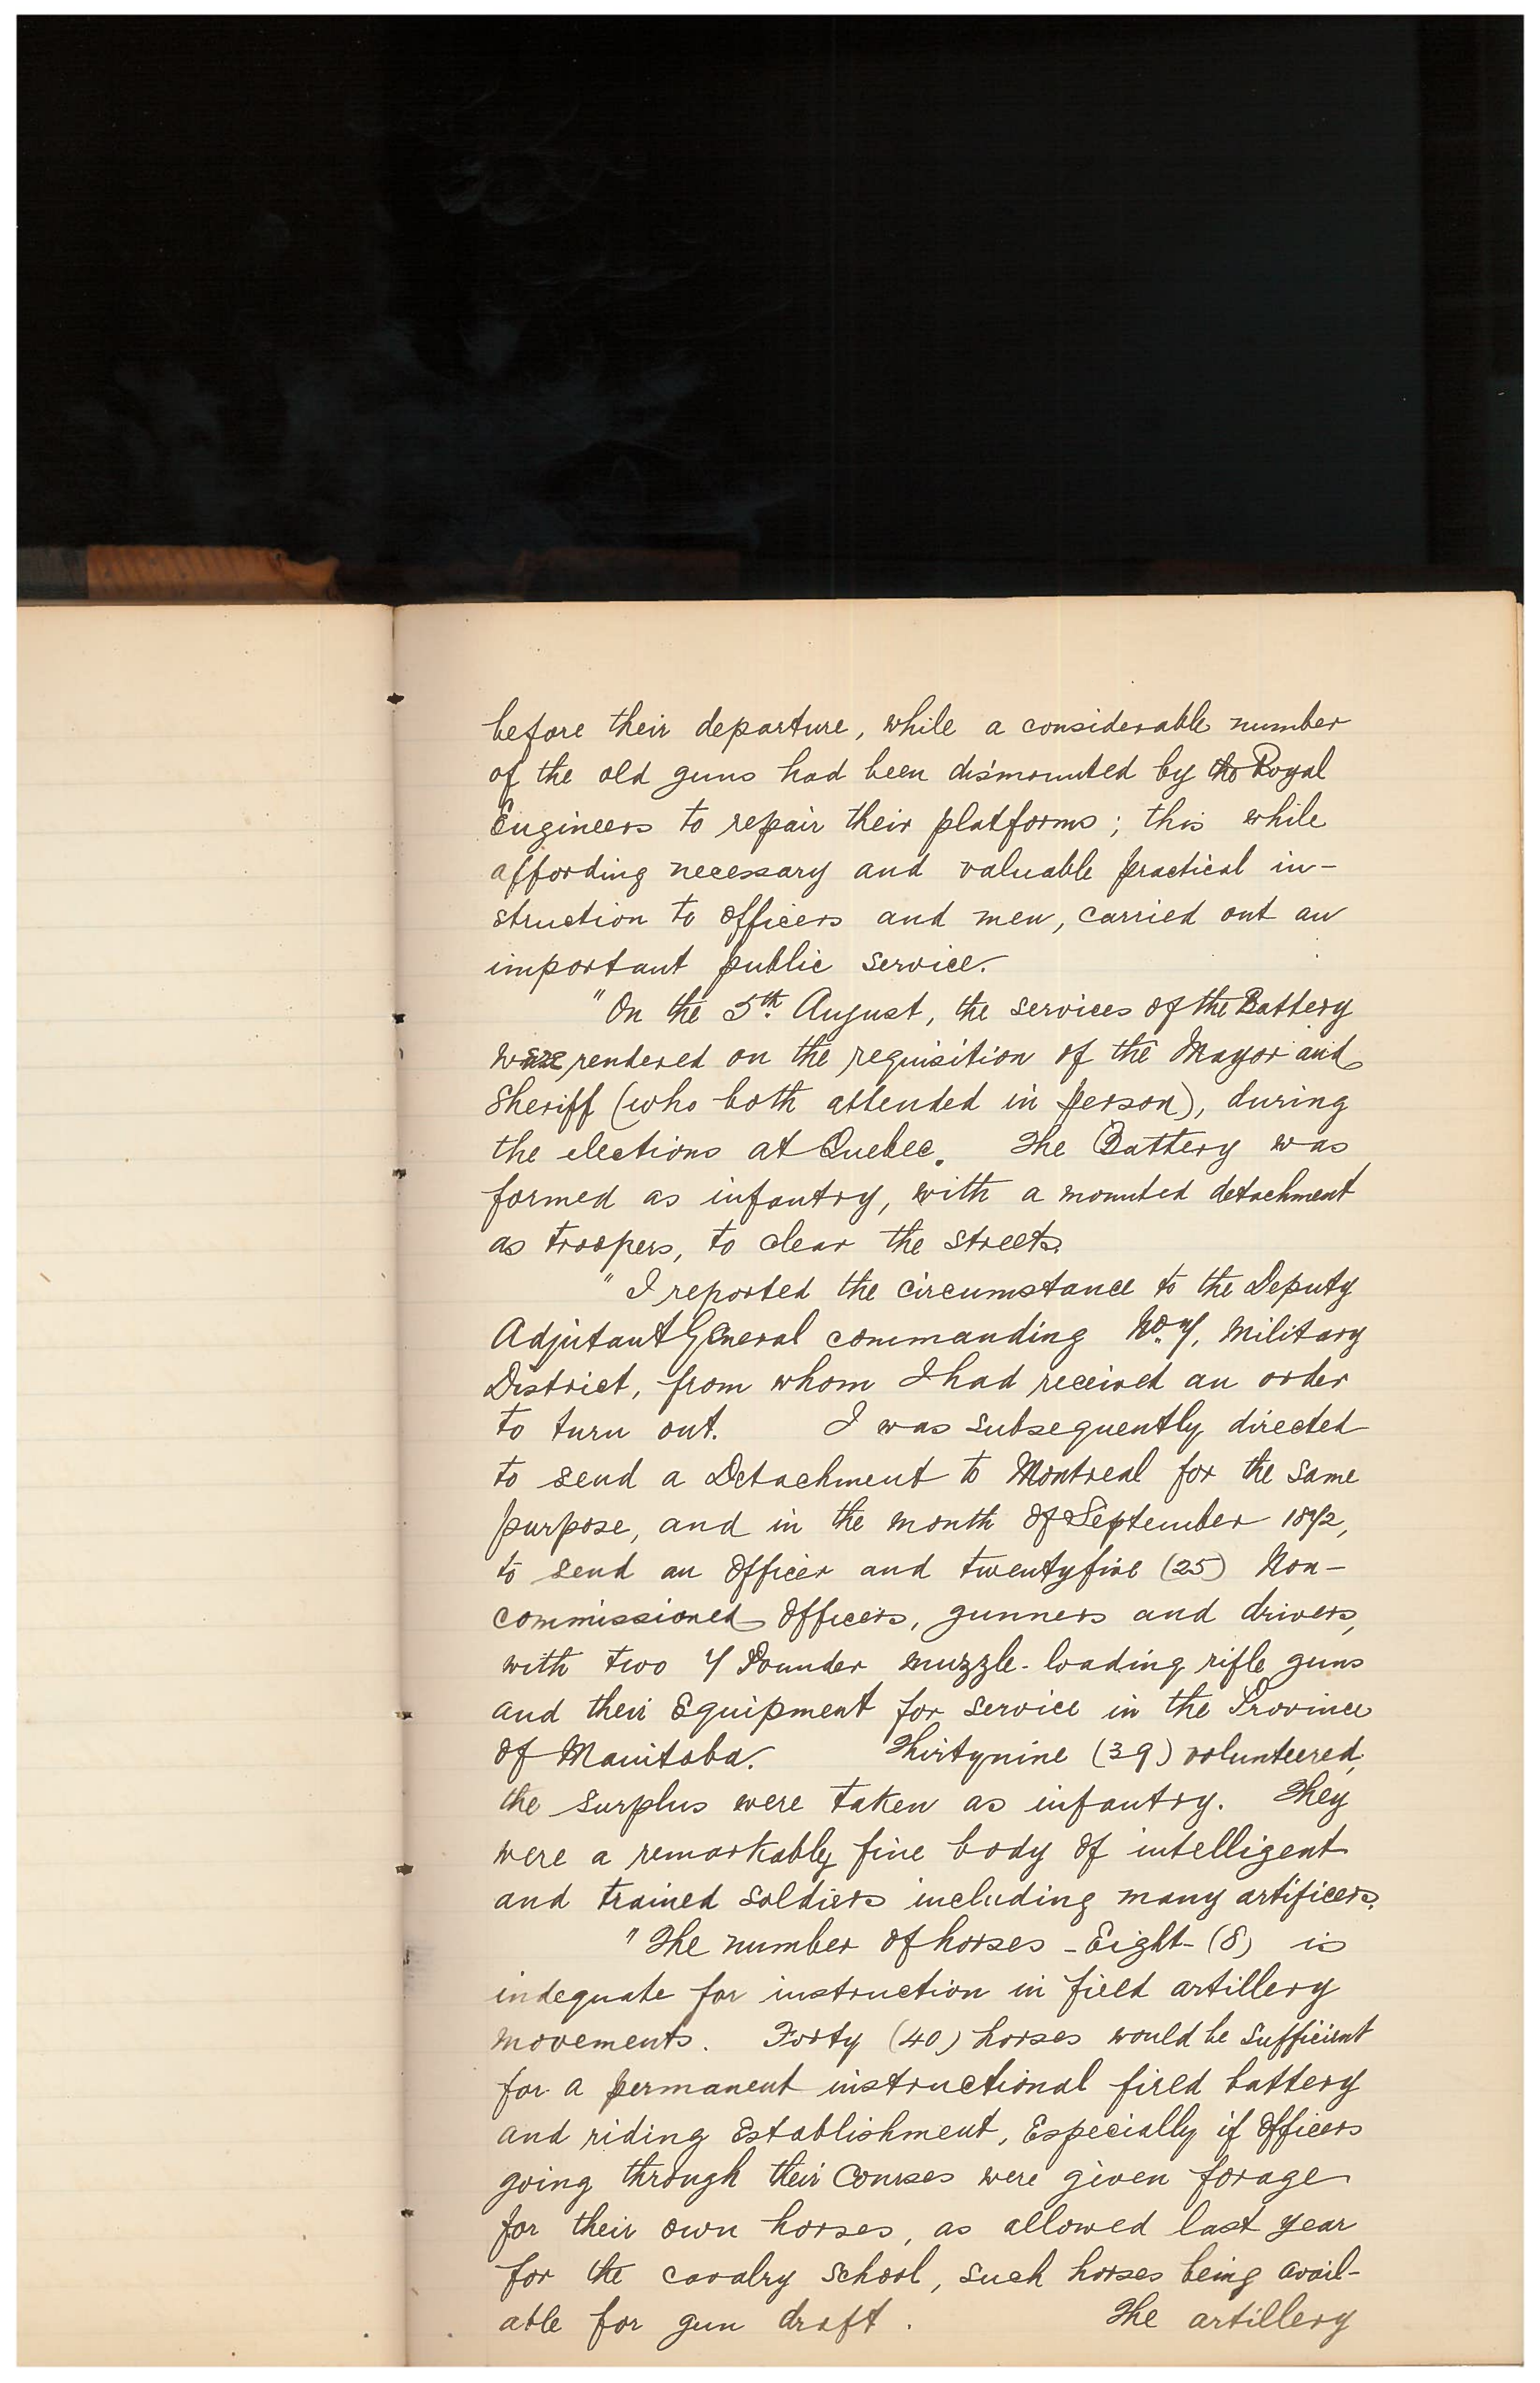 before their departure, while a considerable number
of the old guns had been dismounted by the Royal
Engineers to repair their platforms; this while
affording necessary and valuable practical in-
struction to officers and men, carried out an
important public service.
"On the 5th. August, the services of the Battery
were rendered on the requisition of the Mayor and
Sheriff (who both attended in person), during
the elections at Quebec. The Battery was
formed as infantry, with a mounted detachment
as troopers, to clear the streets.
"I reported the circumstance to the Deputy
Adjutant General commanding No. 7, Military
District, from whom I had received an order
to turn out. I was subsequently directed
to send a Detachment to Montreal for the same
purpose, and in the month of September 1872,
to send an Officer and twentyfive (25) Non-
commissioned Officers, gunners and drivers,
with two 7 Pounder muzzle-loading rifle guns
and their Equipment for service in the Province
of Manitoba. Thirtynine (39) volunteered,
the surplus were taken as infantry. They
were a remarkably fine body of intelligent
and trained soldiers including many artificers.
"The number of horses - Eight - (8) is
indequate for instruction in field artillery
movements. Forty (40) horses would be sufficient
for a permanent instructional fired battery
and riding Establishment, Especially if Officers
going through their Courses were given forage
for their own horses, as allowed last year
for the cavalry school, such horses being avail-
able for gun draft. The artillery